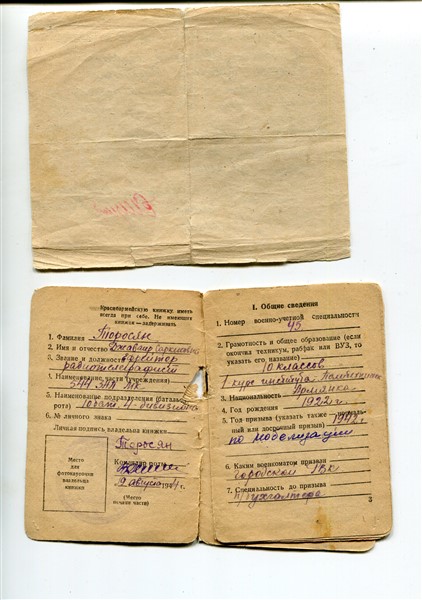 Красноармейскую книжку иметь
всегда при себе. Не имеющих
книжки — задерживать
1. Фамилия Торосян
2. Имя и отчество Джаваир Саркисовна
3. Звание и должность ефрейтор
радиотелеграфист
4. Наименование части (учреждения)
544
5. Наименование подразделения (батальон,
рота)
6. № личного знака
Личная подпись владельца книжки
Торосян
Место
для
фотокарточки
владельца
книжки
Командир
9 августа 1944 г.
(Место
печати части)
I. Общие сведения
1. Номер военно-учетной специальности
45
2. Грамотность и общее образование (если
окончил техникум, рабфак или ВУЗ, то
указать его название)
10 классов
1 курс института
3. Национальность Армянка
4. Год рождения 1922 г.
5. Год призыва (указать также нормальный
или досрочный призыв)
по мобилизации
6. Каким военкоматом призван
городским
7. Специальность до призыва
бухгалтера
3